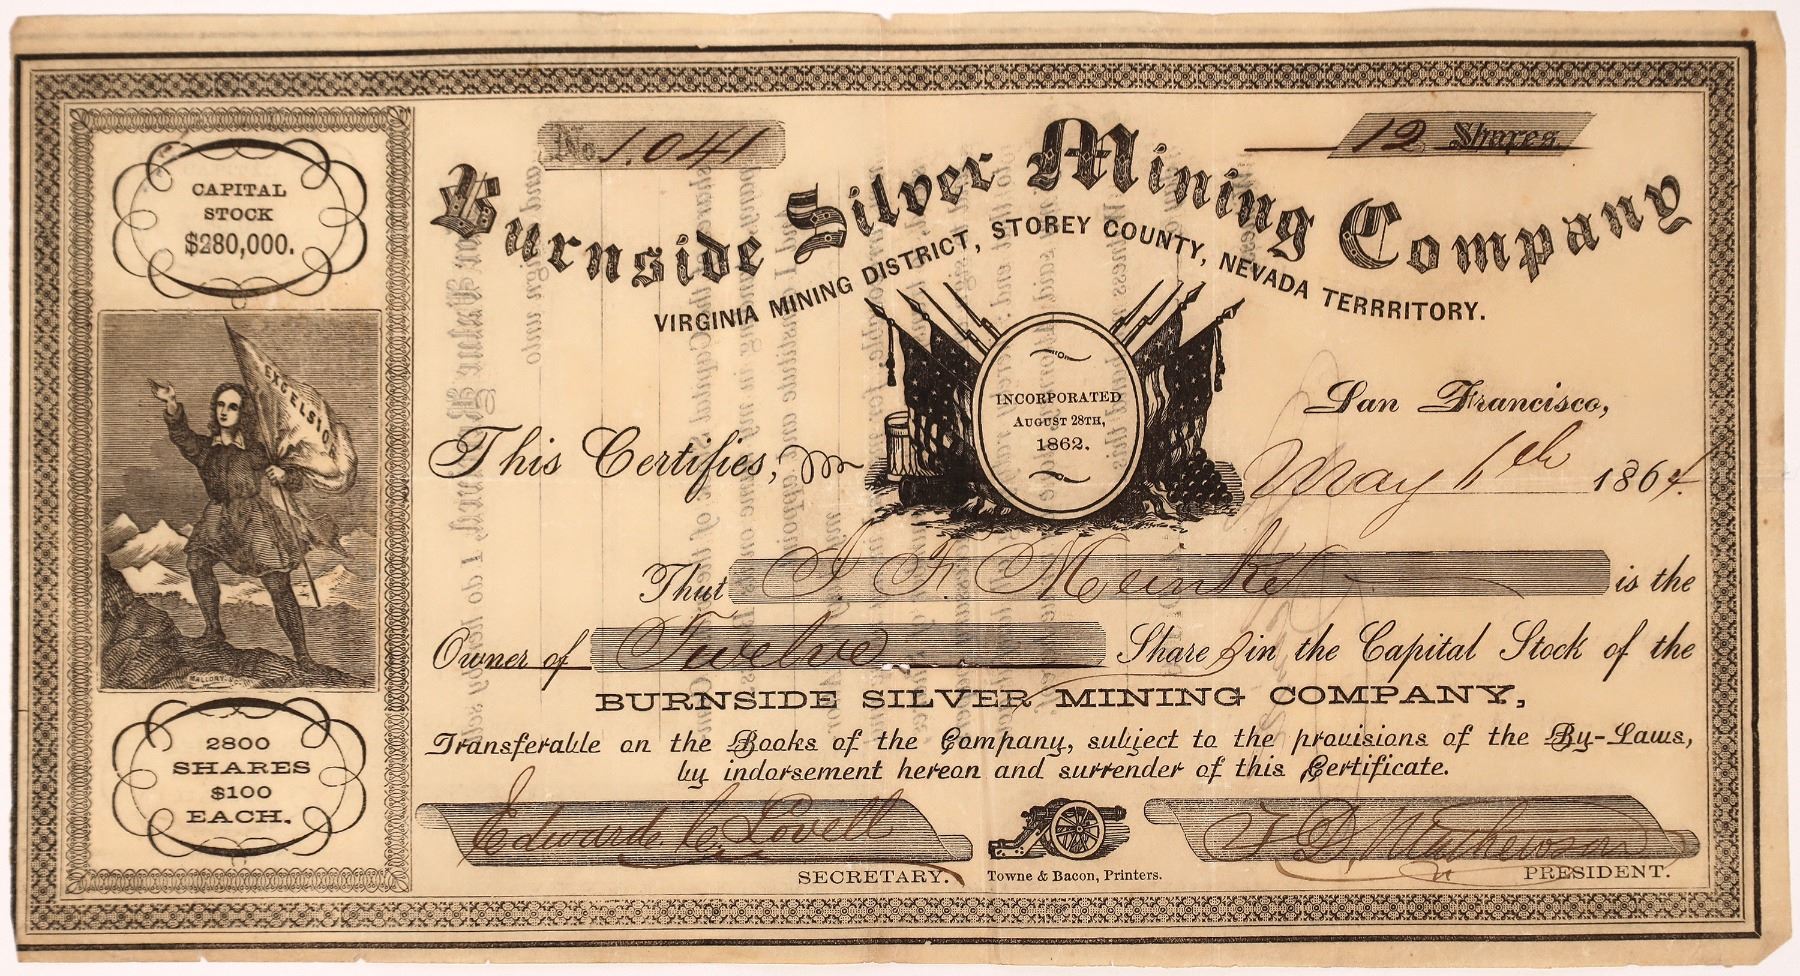 No. 1.041
12 Shares.
Burnside Silver Mining Company
VIRGINIA MINING DISTRICT, STOREY COUNTY, NEVADA TERRRITORY.
CAPITAL
STOCK
$280,000.
EXCELSIOR
MALLORY
2800
SHARES
$100
EACH.
INCORPORATED
AUGUST 28TH,
1862.
San Francisco,
This Certifies,
May 6th 1864.
That J. F. Meinke is the
Owner of Twelve Shares in the Capital Stock of the
BURNSIDE SILVER MINING COMPANY,
Transferable on the Books of the Company, subject to the provisions of the By-Laws,
by indorsement hereon and surrender of this Certificate.
Edwards C. Lovell
SECRETARY.
Towne & Bacon, Printers.
PRESIDENT.